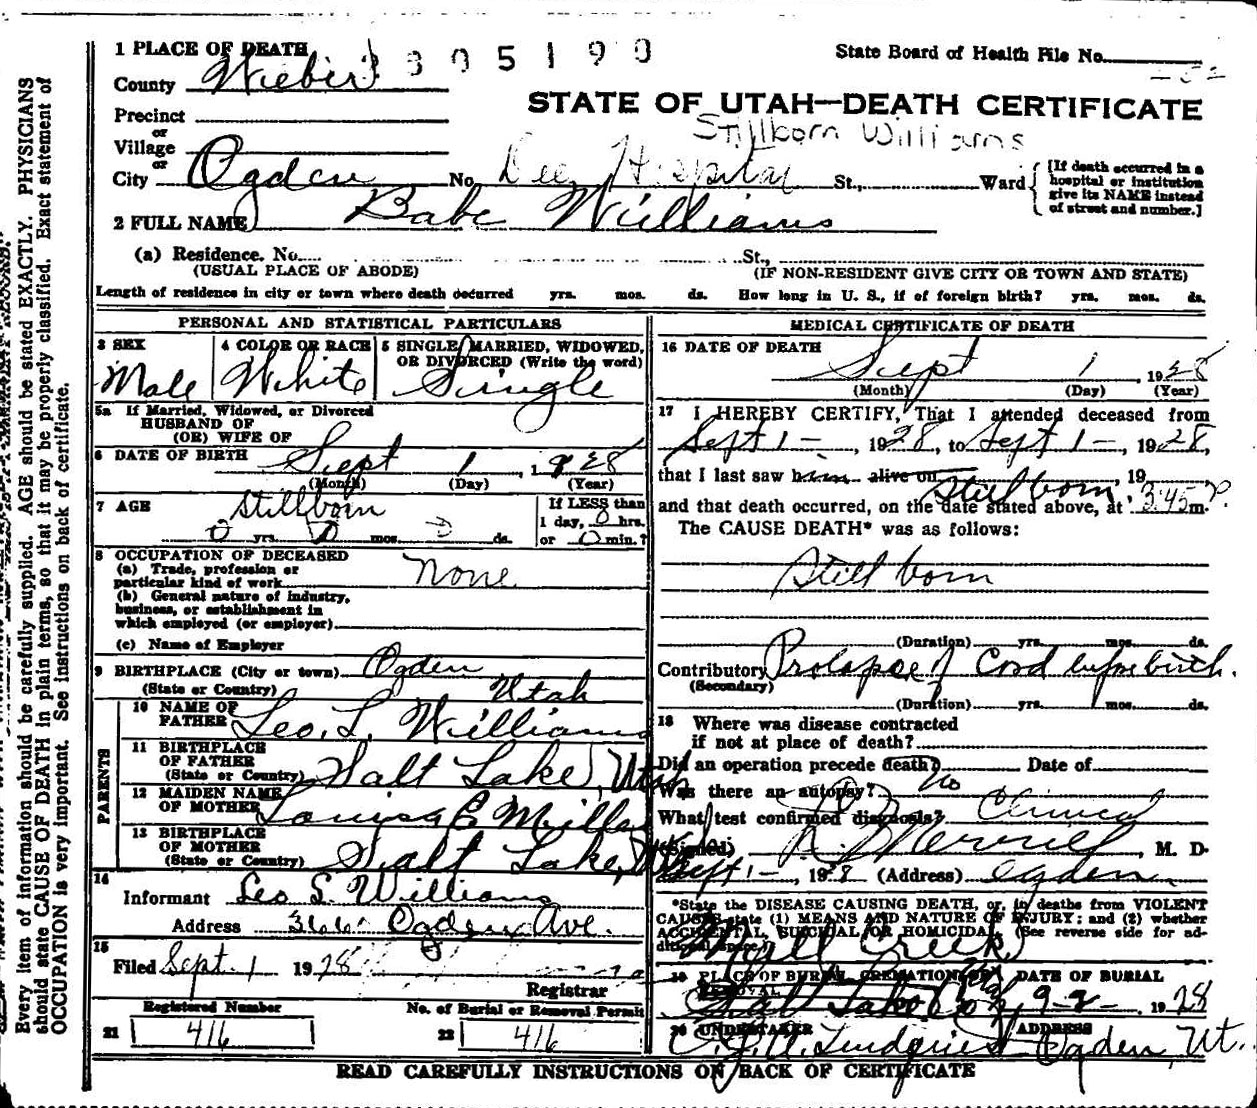 1 PLACE OF DEATH
3 8 0 5 1 9 0
State Board of Health File No.
County Weber
STATE OF UTAH—DEATH CERTIFICATE
Precinct
Stillborn Williams
or
Village
or
City Ogden No. Dee Hospital St., Ward
[If death occurred in a
hospital or institution
give its NAME instead
of street and number.]
2 FULL NAME Babe Williams
(a) Residence. No. St.,
(USUAL PLACE OF ABODE) (IF NON-RESIDENT GIVE CITY OR TOWN AND STATE)
Length of residence in city or town where death occurred yrs. mos. ds. How long in U. S., if of foreign birth? yrs. mos. ds.
PERSONAL AND STATISTICAL PARTICULARS
3 SEX 4 COLOR OR RACE 5 SINGLE, MARRIED, WIDOWED,
OR DIVORCED (Write the word)
Male White Single
5a If Married, Widowed, or Divorced
HUSBAND OF
(OR) WIFE OF
6 DATE OF BIRTH Sept 1, 1928
(Month) (Day) (Year)
7 AGE Stillborn If LESS than
1 day, 0 hrs.
0 yrs. 0 mos. 0 ds. or 0 min.?
8 OCCUPATION OF DECEASED
(a) Trade, profession or
particular kind of work None
(b) General nature of industry,
business, or establishment in
which employed (or employer)
(c) Name of Employer
9 BIRTHPLACE (City or town) Ogden
(State or Country) Utah
PARENTS
10 NAME OF
FATHER Leo. L. Williams
11 BIRTHPLACE
OF FATHER
(State or Country) Salt Lake, Utah
12 MAIDEN NAME
OF MOTHER Louisa E Miller
13 BIRTHPLACE
OF MOTHER
(State or Country) Salt Lake, Utah
14
Informant Leo S. Williams
Address Ogden Ave.
15
Filed Sept. 1 1928
Registrar
Registered Number No. of Burial or Removal Permit
21 416 22 416
MEDICAL CERTIFICATE OF DEATH
16 DATE OF DEATH
Sept 1, 1928
(Month) (Day) (Year)
17 I HEREBY CERTIFY, That I attended deceased from
Sept 1-, 1928, to Sept 1-, 1928,
that I last saw him alive on Stillborn, 19
and that death occurred, on the date stated above, at 3:45 P m.
The CAUSE DEATH* was as follows:
Still born
(Duration) yrs. mos. ds.
Contributory Prolapse of Cord before birth.
(Secondary)
(Duration) yrs. mos. ds.
18 Where was disease contracted
if not at place of death?
Did an operation precede death? No Date of
Was there an autopsy? No
What test confirmed diagnosis? Clinical
(Signed) Merrill, M. D.
Sept 1-, 1928 (Address) Ogden
*State the DISEASE CAUSING DEATH, or, in deaths from VIOLENT
CAUSES state (1) MEANS AND NATURE OF INJURY; and (2) whether
ACCIDENTAL, SUICIDAL OR HOMICIDAL. (See reverse side for ad-
ditional space.)
Mill Creek
19 PLACE OF BURIAL, CREMATION OR REMOVAL DATE OF BURIAL
Salt Lake Co. 9-2-1928
20 UNDERTAKER ADDRESS
Lindquist Ogden, Ut.
READ CAREFULLY INSTRUCTIONS ON BACK OF CERTIFICATE
Every item of information should be carefully supplied. AGE should be stated EXACTLY. PHYSICIANS
should state CAUSE OF DEATH in plain terms, so that it may be properly classified. Exact statement of
OCCUPATION is very important. See instructions on back of certificate.